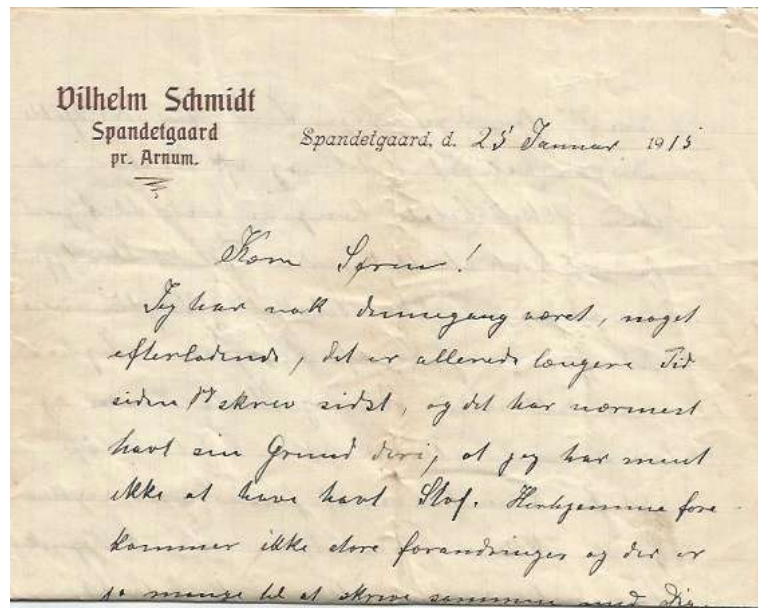 Vilhelm Schmidt
Spandetgaard
pr. Arnum.
Spandetgaard, d. 25 Januar 1915
Kære Søren!
Jeg har nok dennegang været, noget
efterladende, det er allerede længere Tid
siden jeg skrev sidst, og det har nærmest
havt sin Grund deri, at jeg har ment
ikke at have havt Stof. Herhjemme fore
kommer ikke store forandringer og der er
jo mange til at skrive sammen med Dig